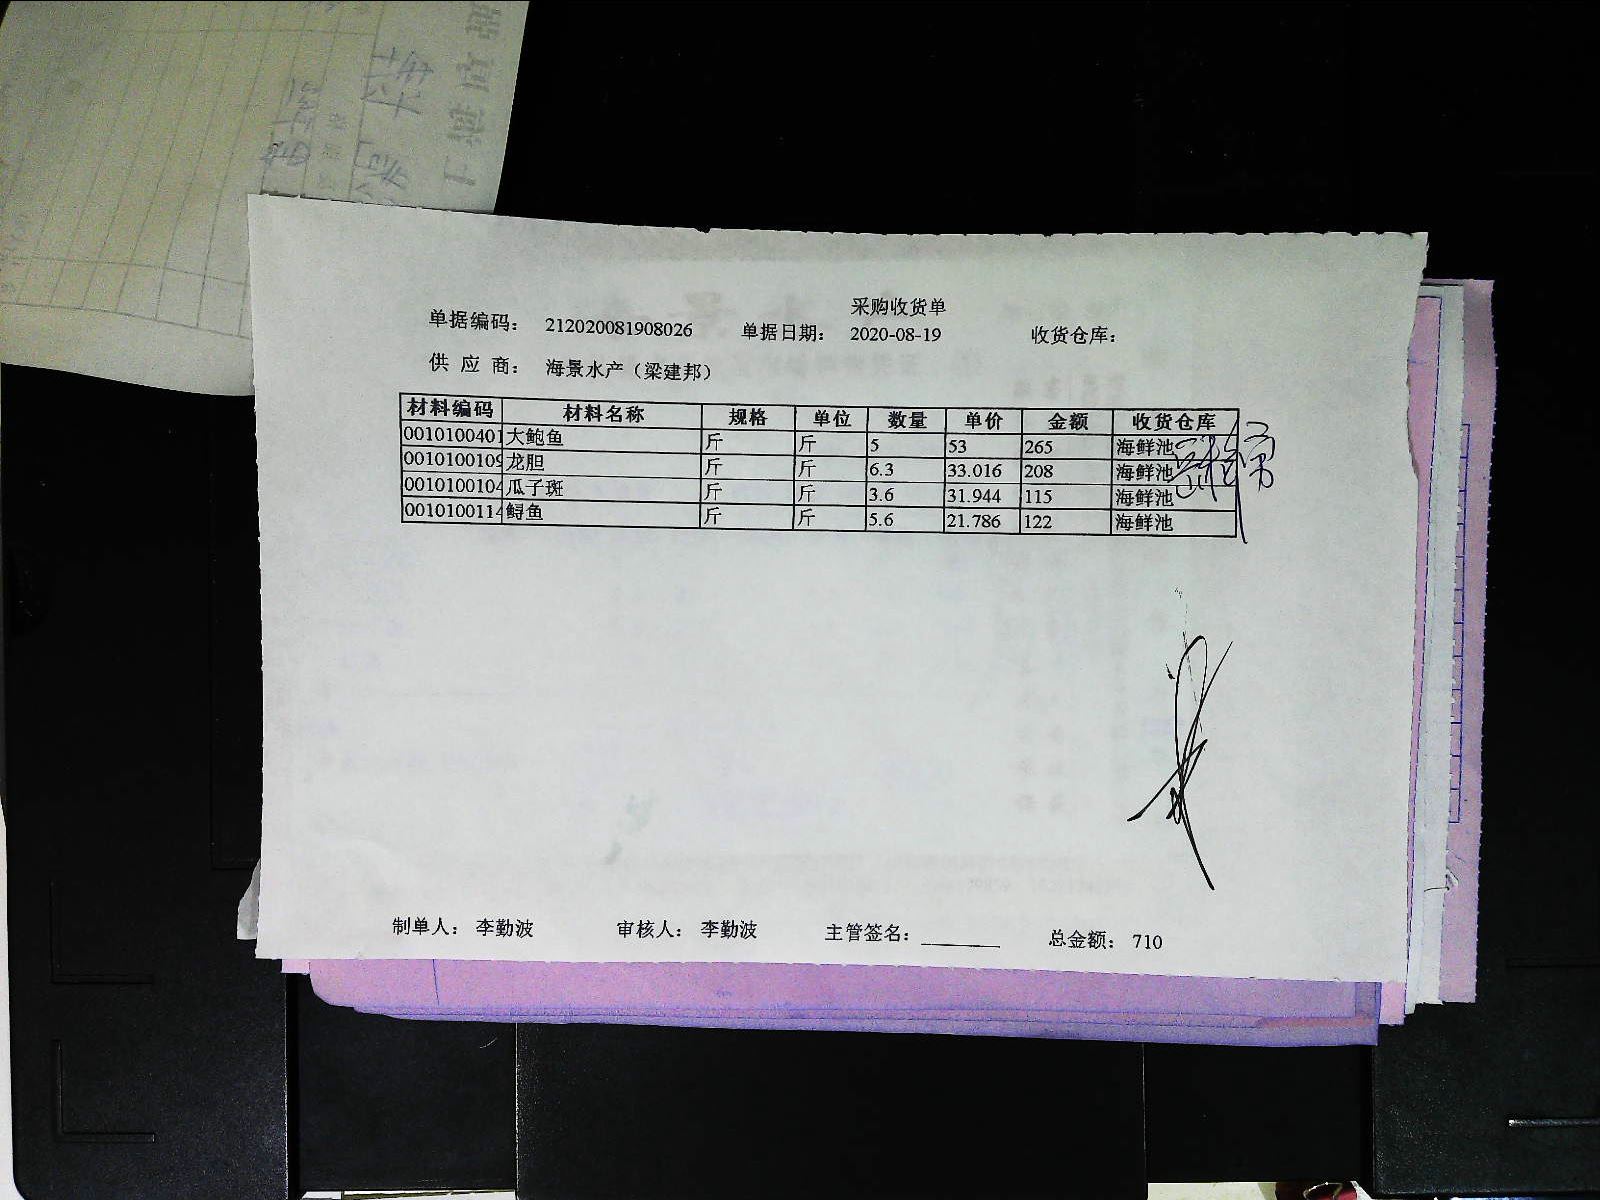 采购收货单
单据编码： 212020081908026 单据日期： 2020-08-19 收货仓库：
供 应 商： 海景水产（梁建邦）
材料编码 材料名称 规格 单位 数量 单价 金额 收货仓库
0010100401 大鲍鱼 斤 斤 5 53 265 海鲜池
0010100109 龙胆 斤 斤 6.3 33.016 208 海鲜池
0010100104 瓜子斑 斤 斤 3.6 31.944 115 海鲜池
0010100114 鲟鱼 斤 斤 5.6 21.786 122 海鲜池
制单人： 李勤波 审核人： 李勤波 主管签名： 总金额： 710